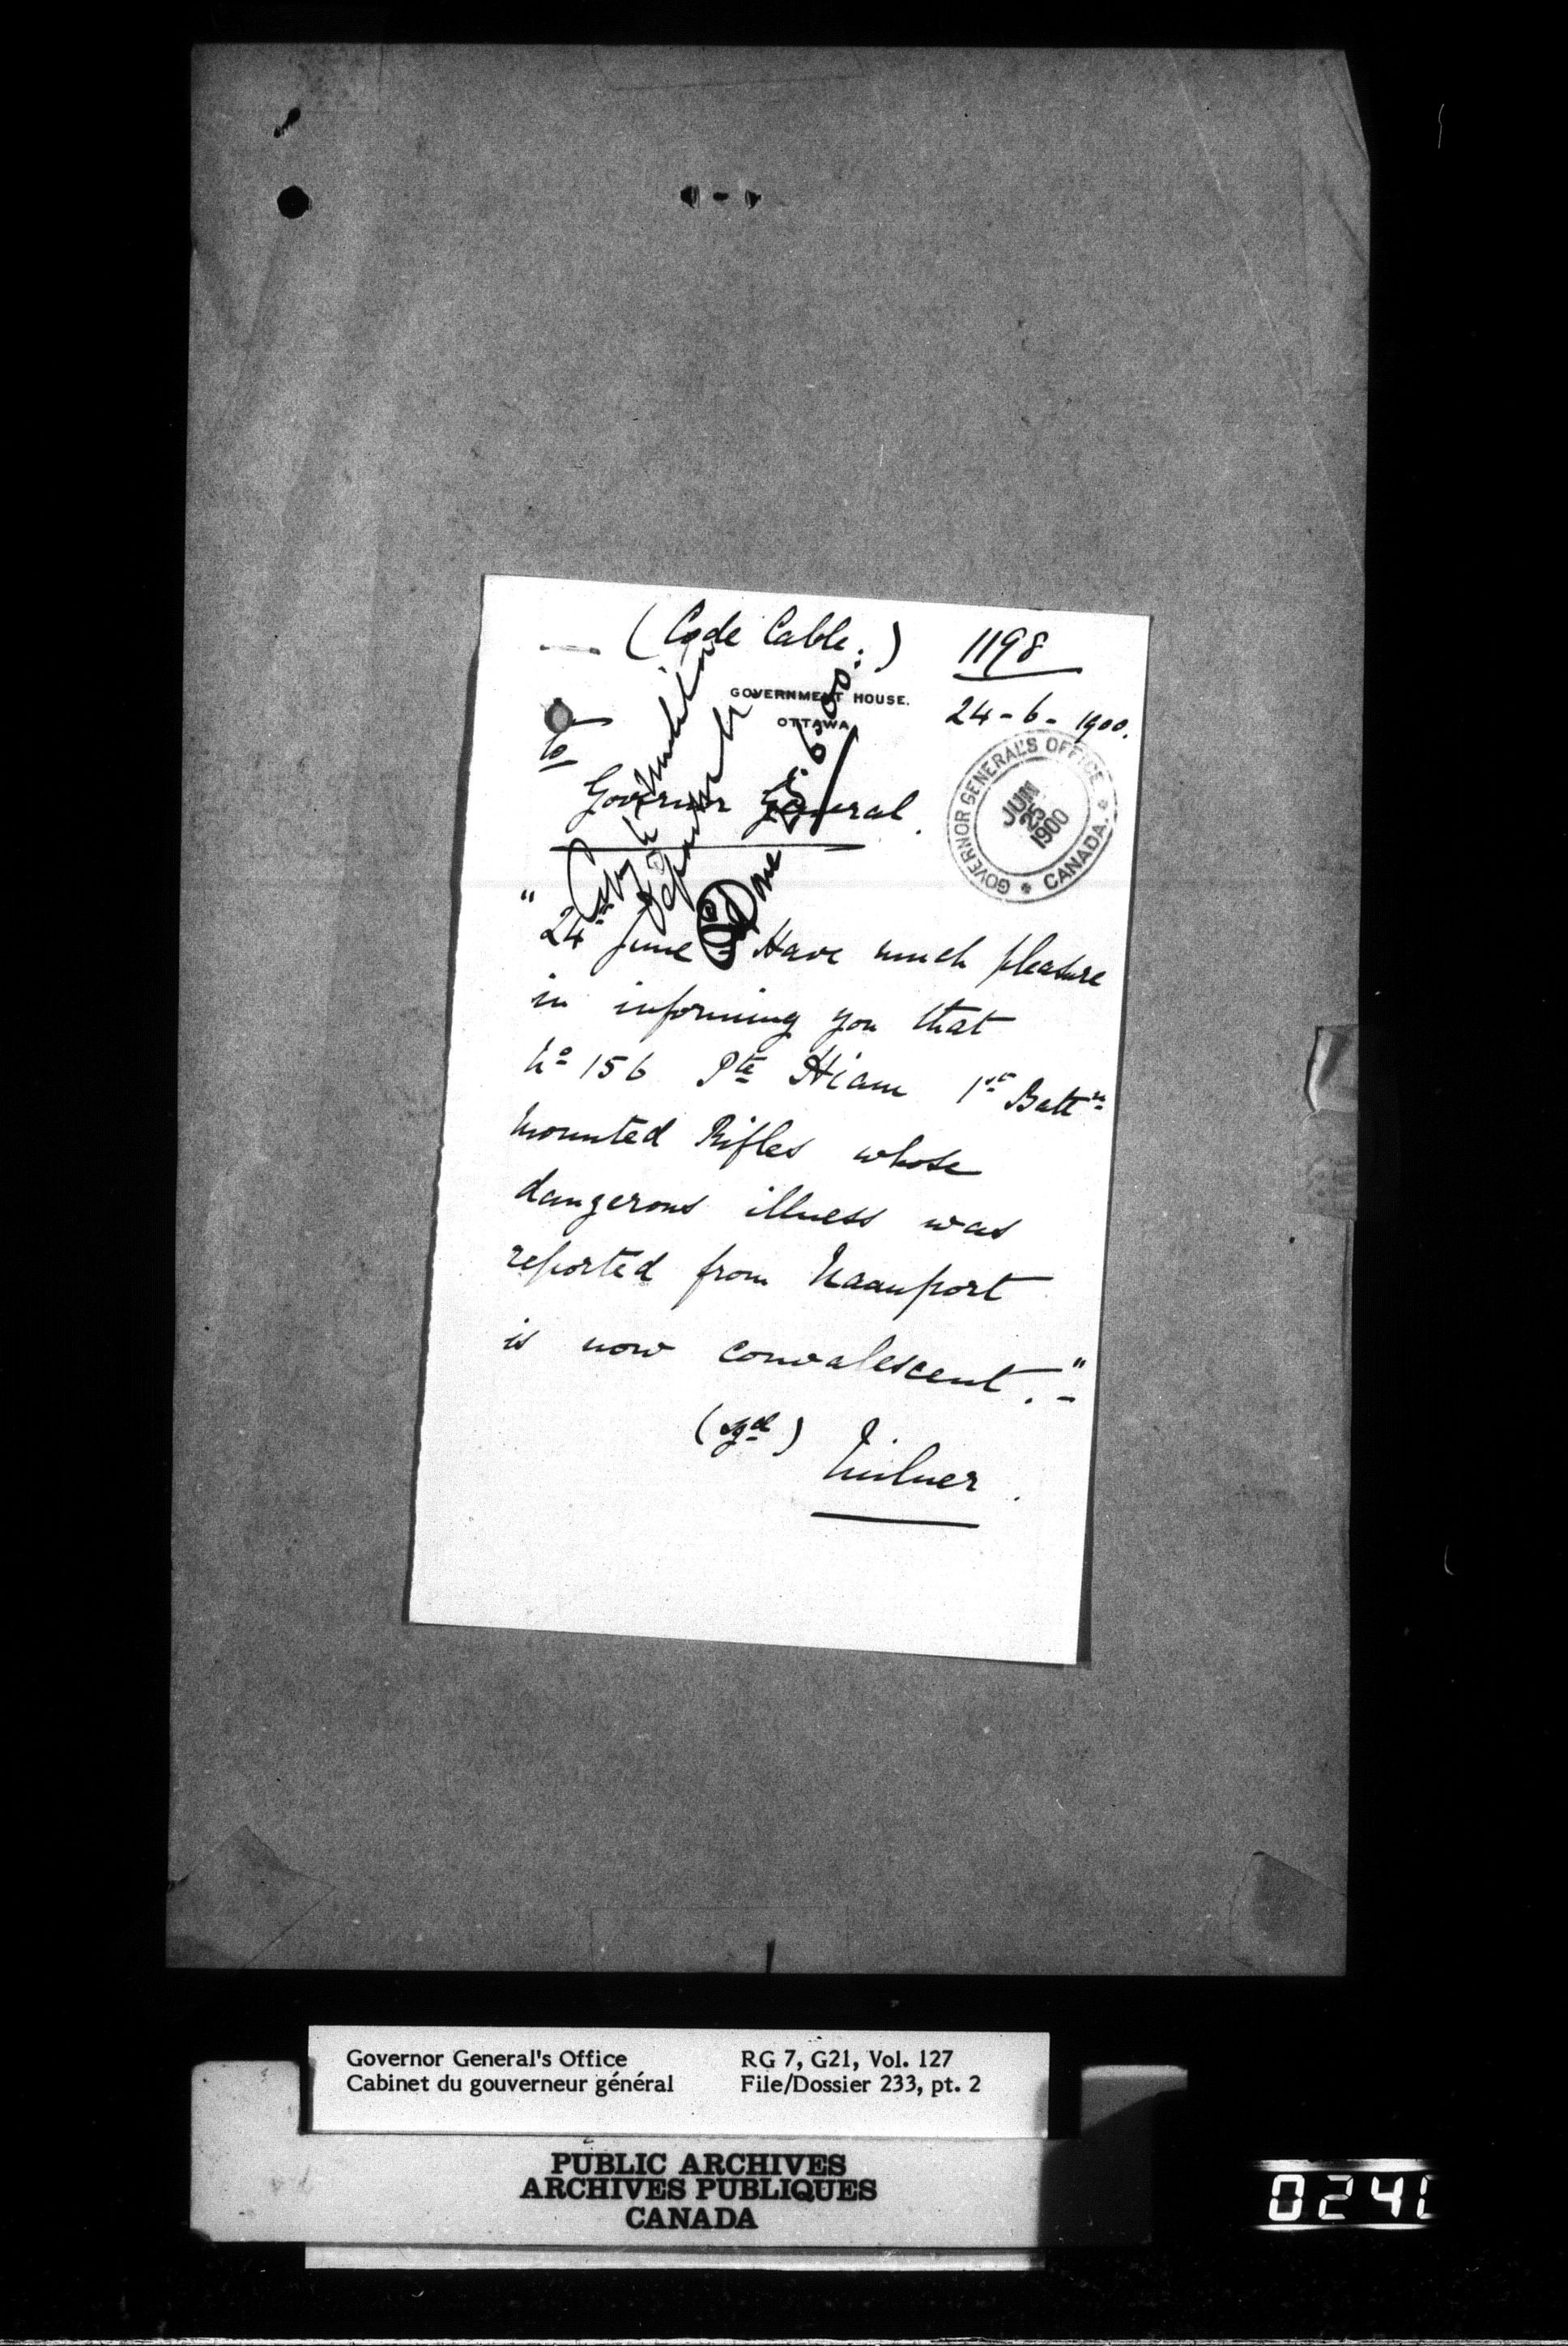 (Code Cable.)
1198
GOVERNMENT HOUSE.
OTTAWA
24-6-1900.
To
Governor General.
GOVERNOR GENERAL'S OFFICE
JUN
25
1900
* CANADA. *
Copy to Militia
Department
Done
25.6.00
"24th June - Have much pleasure
in informing you that
No 156 Pte Hiam 1st Battn
Mounted Rifles whose
dangerous illness was
reported from Naauwport
is now convalescent." -
(sgd) Milner.
Governor General's Office
Cabinet du gouverneur général
RG 7, G21, Vol. 127
File/Dossier 233, pt. 2
PUBLIC ARCHIVES
ARCHIVES PUBLIQUES
CANADA